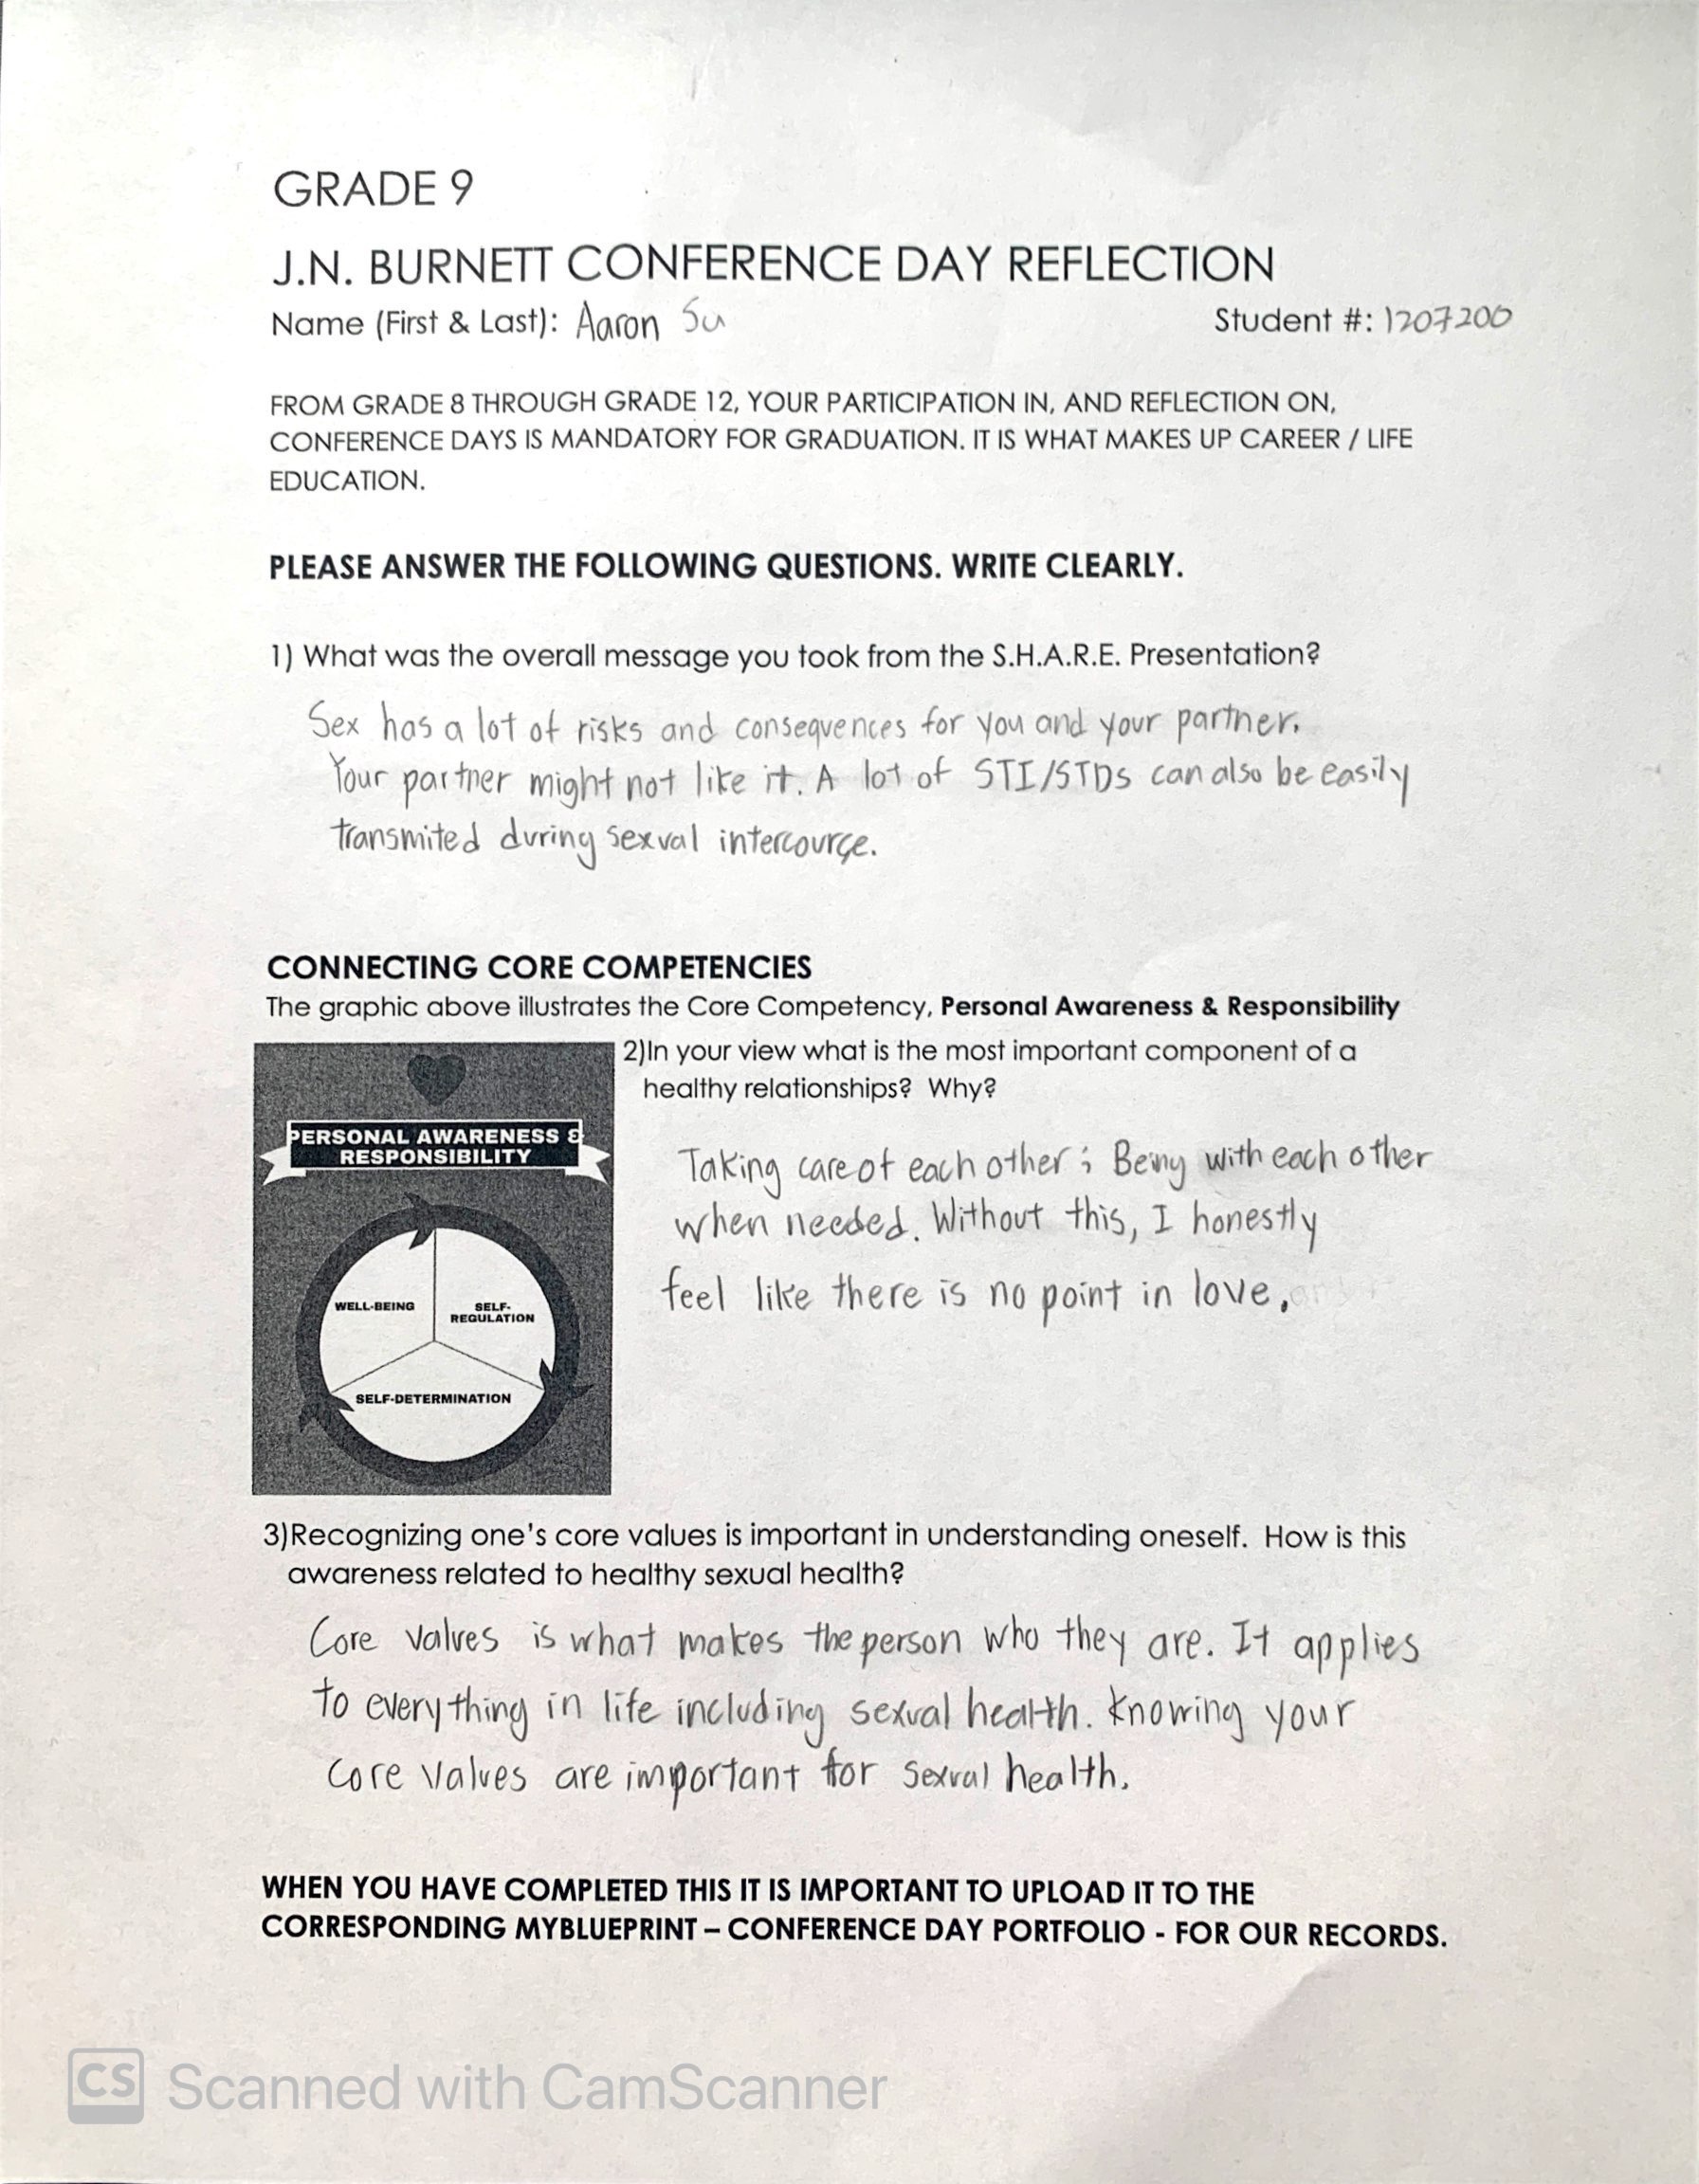 GRADE 9
J.N. BURNETT CONFERENCE DAY REFLECTION
Name (First & Last): Aaron Su Student #: 1207200
FROM GRADE 8 THROUGH GRADE 12, YOUR PARTICIPATION IN, AND REFLECTION ON,
CONFERENCE DAYS IS MANDATORY FOR GRADUATION. IT IS WHAT MAKES UP CAREER / LIFE
EDUCATION.
PLEASE ANSWER THE FOLLOWING QUESTIONS. WRITE CLEARLY.
1) What was the overall message you took from the S.H.A.R.E. Presentation?
Sex has a lot of risks and consequences for you and your partner.
Your partner might not like it. A lot of STI/STDs can also be easily
transmited during sexual intercourse.
CONNECTING CORE COMPETENCIES
The graphic above illustrates the Core Competency, Personal Awareness & Responsibility
PERSONAL AWARENESS &
RESPONSIBILITY
WELL-BEING
SELF-
REGULATION
SELF-DETERMINATION
2)In your view what is the most important component of a
healthy relationships? Why?
Taking care of each other; Being with each other
when needed. Without this, I honestly
feel like there is no point in love.
3)Recognizing one's core values is important in understanding oneself. How is this
awareness related to healthy sexual health?
Core values is what makes the person who they are. It applies
to everything in life including sexual health. Knowing your
core values are important for sexual health.
WHEN YOU HAVE COMPLETED THIS IT IS IMPORTANT TO UPLOAD IT TO THE
CORRESPONDING MYBLUEPRINT – CONFERENCE DAY PORTFOLIO - FOR OUR RECORDS.
CS Scanned with CamScanner